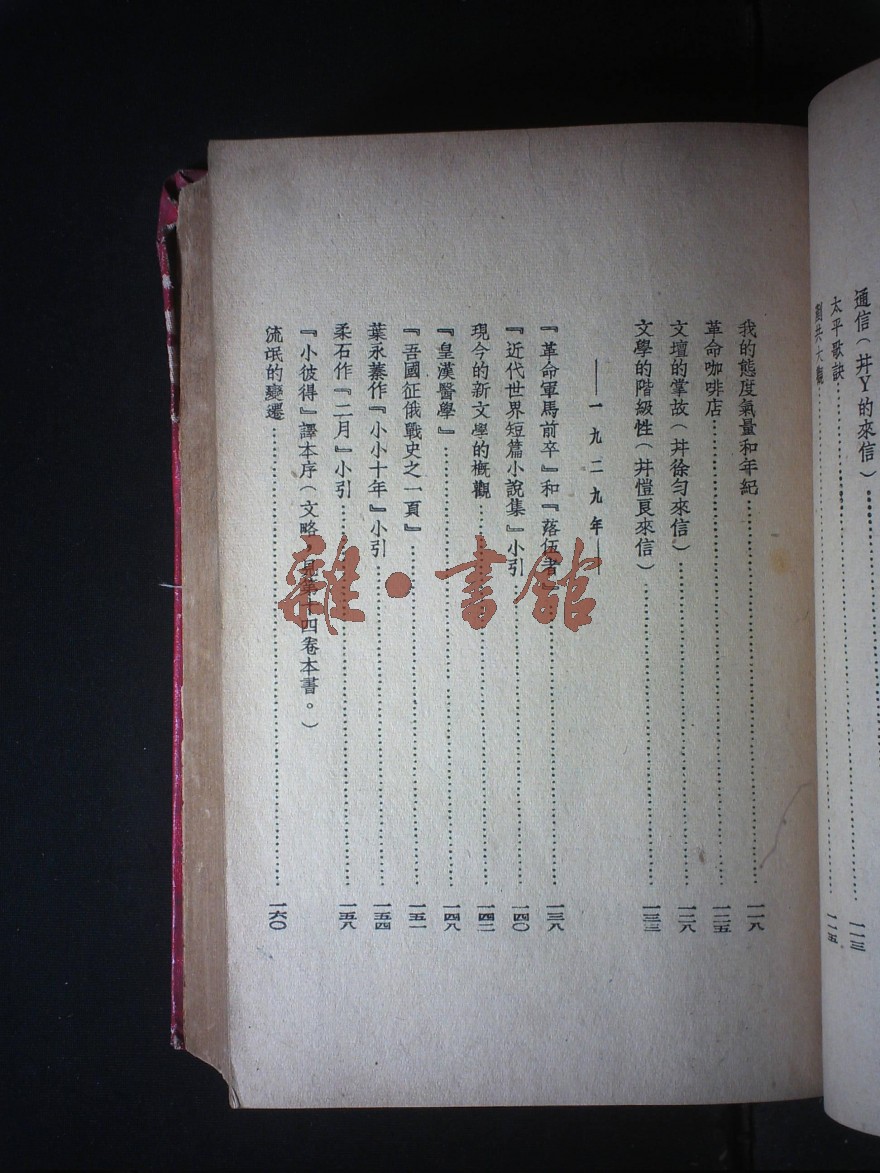 通信（幷Y的來信）……一一三
太平歌訣……一一五
剷共大觀……
我的態度氣量和年紀……一一八
革命咖啡店……一二五
文壇的掌故（幷徐勻來信）……一二八
文學的階級性（幷愷良來信）……一三三
——一九二九年——
『革命軍馬前卒』和『落伍者』……一三八
『近代世界短篇小說集』小引……一四〇
現今的新文學的概觀……一四二
『皇漢醫學』……一四八
『吾國征俄戰史之一頁』……一五一
葉永蓁作『小小十年』小引……一五四
柔石作『二月』小引……一五八
『小彼得』譯本序（文略，見第十四卷本書。）
流氓的變遷……一六〇
雜·書館